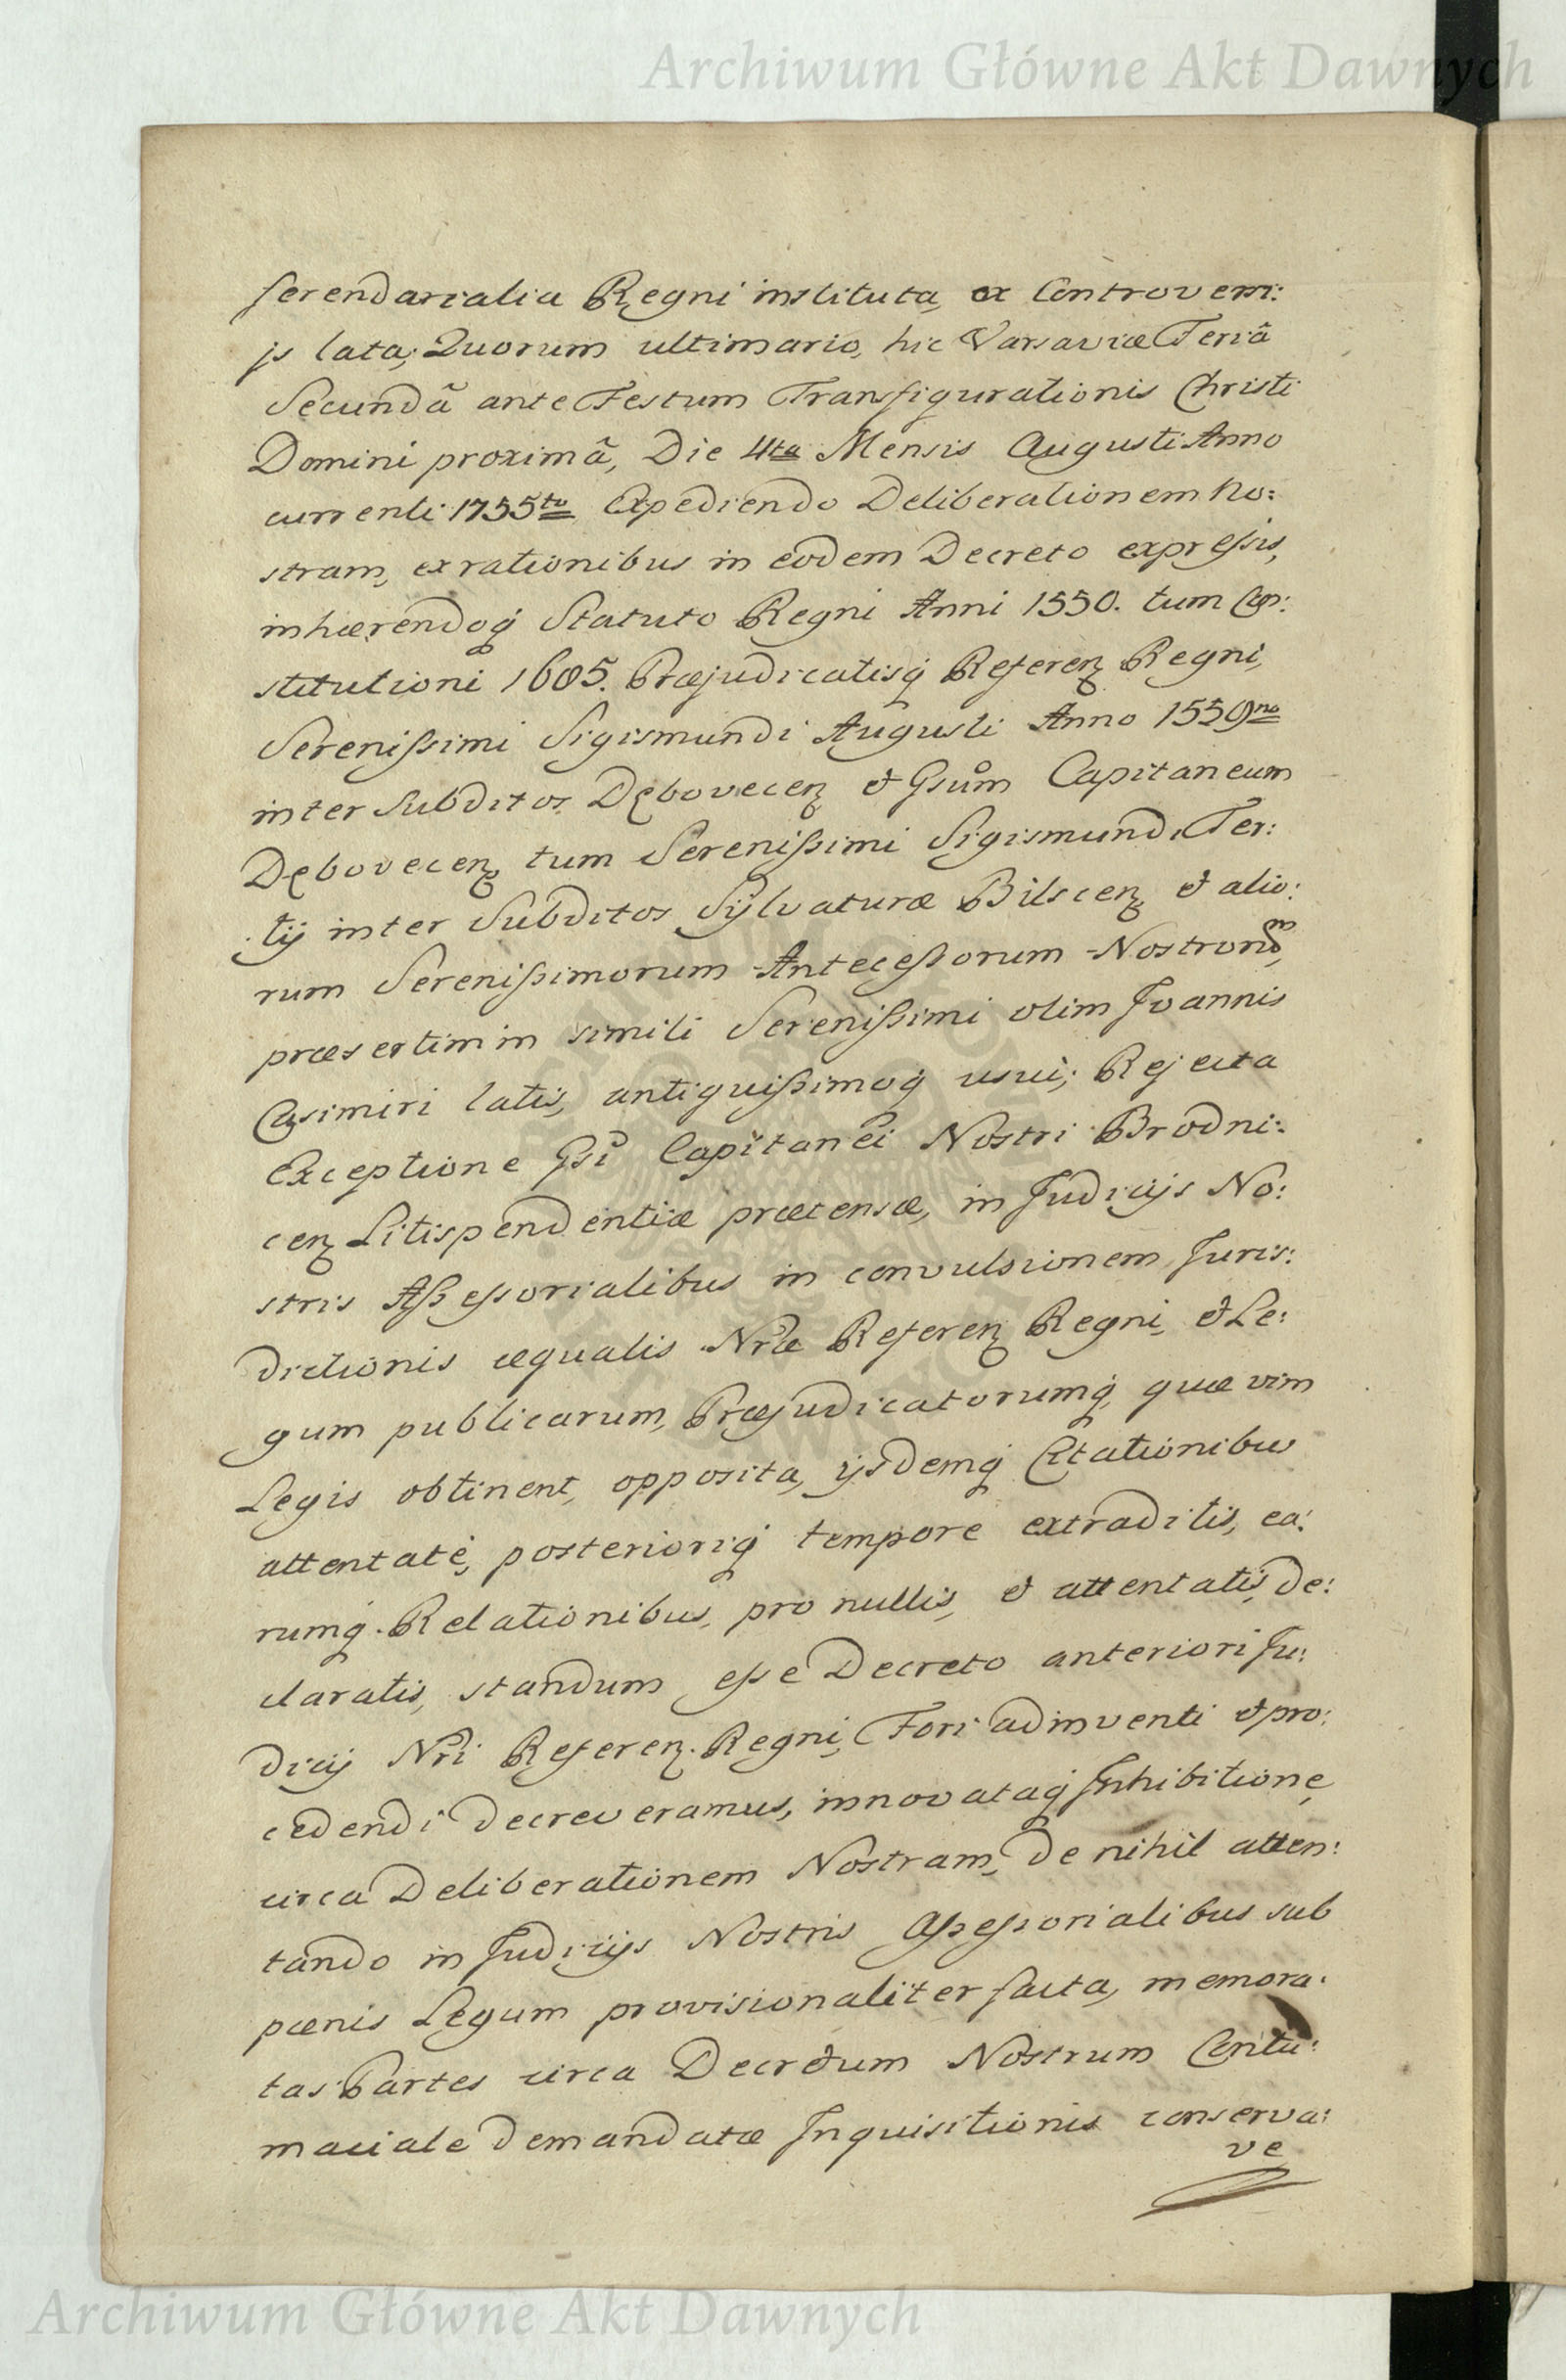 Archiwum Główne Akt Dawnych
ferendarialia Regni instituta, ex Controversi:
js lata; Quorum ultimario, hic Varsaviæ Feriâ
Secundâ ante Festum Transfigurationis Christi
Domini proximâ, Die 4ta Mensis Augusti Anno
currenti 1755to Expediendo Deliberationem No:
stram, ex rationibus in eodem Decreto expressis,
inhærendoq̃ Statuto Regni Anni 1550. tum Con:
stitutioni 1605. Præjudicatisq̃ Referen Regni,
Serenissimi Sigismundi Augusti Anno 1559no
inter Subditos Dębovecen et Gsum Capitaneum
Dębovecen tum Serenissimi Sigismundi Ter:
tij inter Subditos Sÿlvaturæ Bilscen et alio:
rum Serenissimorum Antecessorum Nostrorum,
præsertim in simili Serenissimi olim Joannis
Casimiri latis, antiquissimoq̃ usui; Rejecta
Exceptione Gsi Capitanei Nostri Brodni:
cen Litispendentiæ prætensæ, in Judicijs No:
stris Assessorialibus in convulsionem Juris:
dictionis æqualis Nræ Referen Regni, et Le:
gum publicarum, Præjudicatorumq̃, quæ vim
Legis obtinent, opposita, ijsdemq̃ Citationibus
attentatè, posterioriq̃ tempore extraditis, ea:
rumq̃ Relationibus, pro nullis, et attentatis, de:
claratis, standum esse Decreto anteriori Ju:
dicij Nri Referen. Regni, Fori adinventi et pro:
cedendi decreveramus, innovataq̃ Inhibitione,
circa Deliberationem Nostram, de nihil atten:
tando in Judicijs Nostris Assessorialibus sub
pœnis Legum provisionaliter facta, memora:
tas Partes circa Decretum Nostrum Contu:
maciale demandatæ Inquisitionis conserva:
ve
Archiwum Główne Akt Dawnych